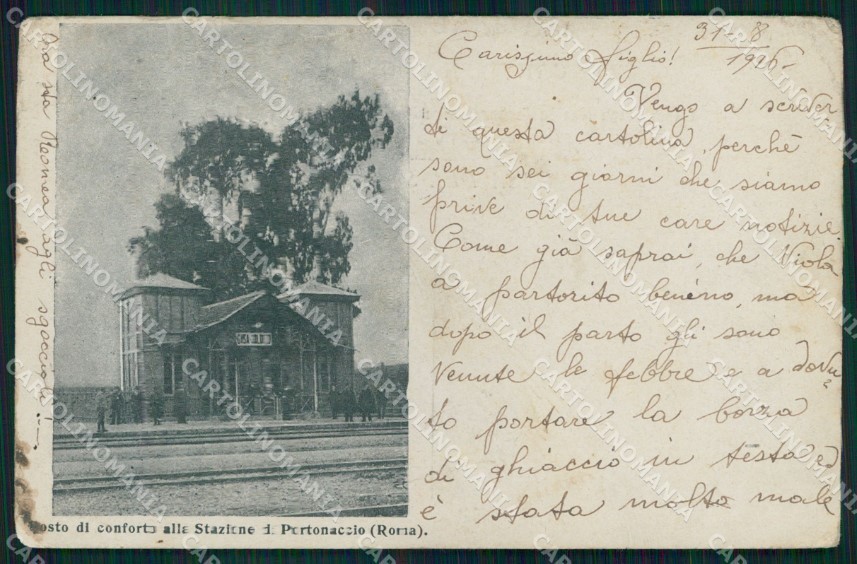 31-8
1926-
Carissimo figlio!
Vengo a scriver
ti questa cartolina, perchè
sono sei giorni che siamo
prive di tue care notizie.
Come già saprai, che Viola
a partorito benino, ma
dopo il parto gli sono
venute le febbre e a dovu=
to portare la borza
di ghiaccio in testa ed
è stata molto male
agli sgoccioli!—
Posto di conforto alla Stazione di Portonaccio (Roma).
CARTOLINOMANIA